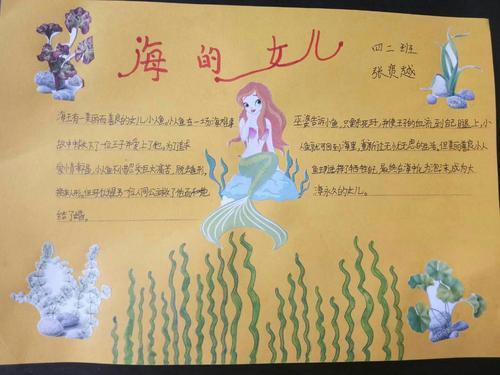 海的女儿
四二班
张赏越
海王有一美丽而善良的女儿小人鱼。小人鱼在一场海难事
故中救下了一位王子并爱上了他。为了追求
爱情幸福，小人鱼不惜忍受巨大痛苦，脱去鱼形，
换来人形。但王子
结了婚。
巫婆告诉小鱼，只要杀死王子，并使王子的血流到自己腿上，小
人鱼就可回到海里，重新过无忧无虑的生活。但美丽善良小人
鱼却选择了牺牲自己，最终在海中化为泡沫，成为大
海永久的女儿。